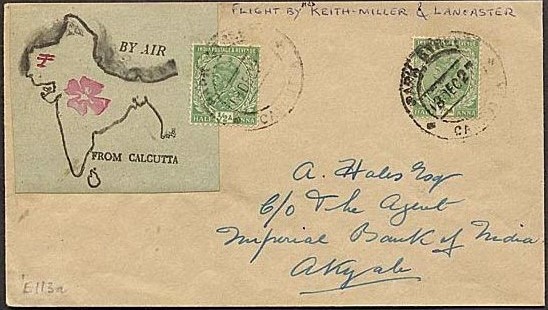 FLIGHT BY MRS KEITH-MILLER & LANCASTER
BY AIR
FROM CALCUTTA
INDIA POSTAGE & REVENUE
HALF ½A ANNA
ANNA
A. Hales Esq
c/o The Agent
Imperial Bank of India
Akyab
E113a